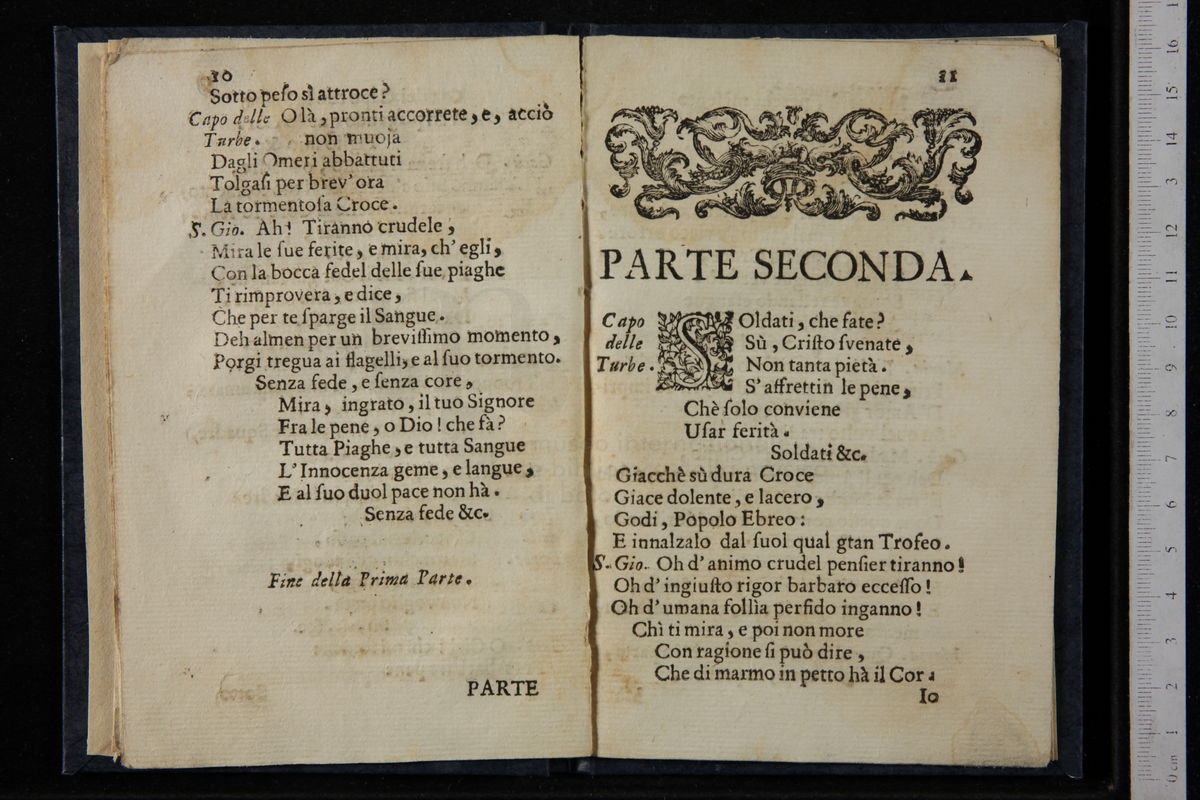 10
Sotto peſo sì attroce?
Capo delle O là, pronti accorrete, e, acciò
Turbe. non muoja
Dagli Omeri abbattuti
Tolgaſi per brev' ora
La tormentoſa Croce.
S. Gio. Ah! Tiranno crudele,
Mira le ſue ferite, e mira, ch' egli,
Con la bocca fedel delle ſue piaghe
Ti rimprovera, e dice,
Che per te ſparge il Sangue.
Deh almen per un breviſſimo momento,
Porgi tregua ai flagelli, e al ſuo tormento.
Senza fede, e ſenza core,
Mira, ingrato, il tuo Signore
Fra le pene, o Dio! che fà?
Tutta Piaghe, e tutta Sangue
L' Innocenza geme, e langue,
E al ſuo duol pace non hà.
Senza fede &c.
Fine della Prima Parte.
PARTE
11
PARTE SECONDA.
Capo SOldati, che fate?
delle Sù, Criſto ſvenate,
Turbe. Non tanta pietà.
S' affrettin le pene,
Chè ſolo conviene
Uſar ferità.
Soldati &c.
Giacchè sù dura Croce
Giace dolente, e lacero,
Godi, Popolo Ebreo:
E innalzalo dal ſuol qual gtan Trofeo.
S. Gio. Oh d' animo crudel penſier tiranno!
Oh d' ingiuſto rigor barbaro ecceſſo!
Oh d' umana follìa perfido inganno!
Chì ti mira, e poi non more
Con ragione ſi può dire,
Che di marmo in petto hà il Cor.
Io
16
15
14
3
12
11
10
9
8
7
6
5
4
3
2
1
0 cm